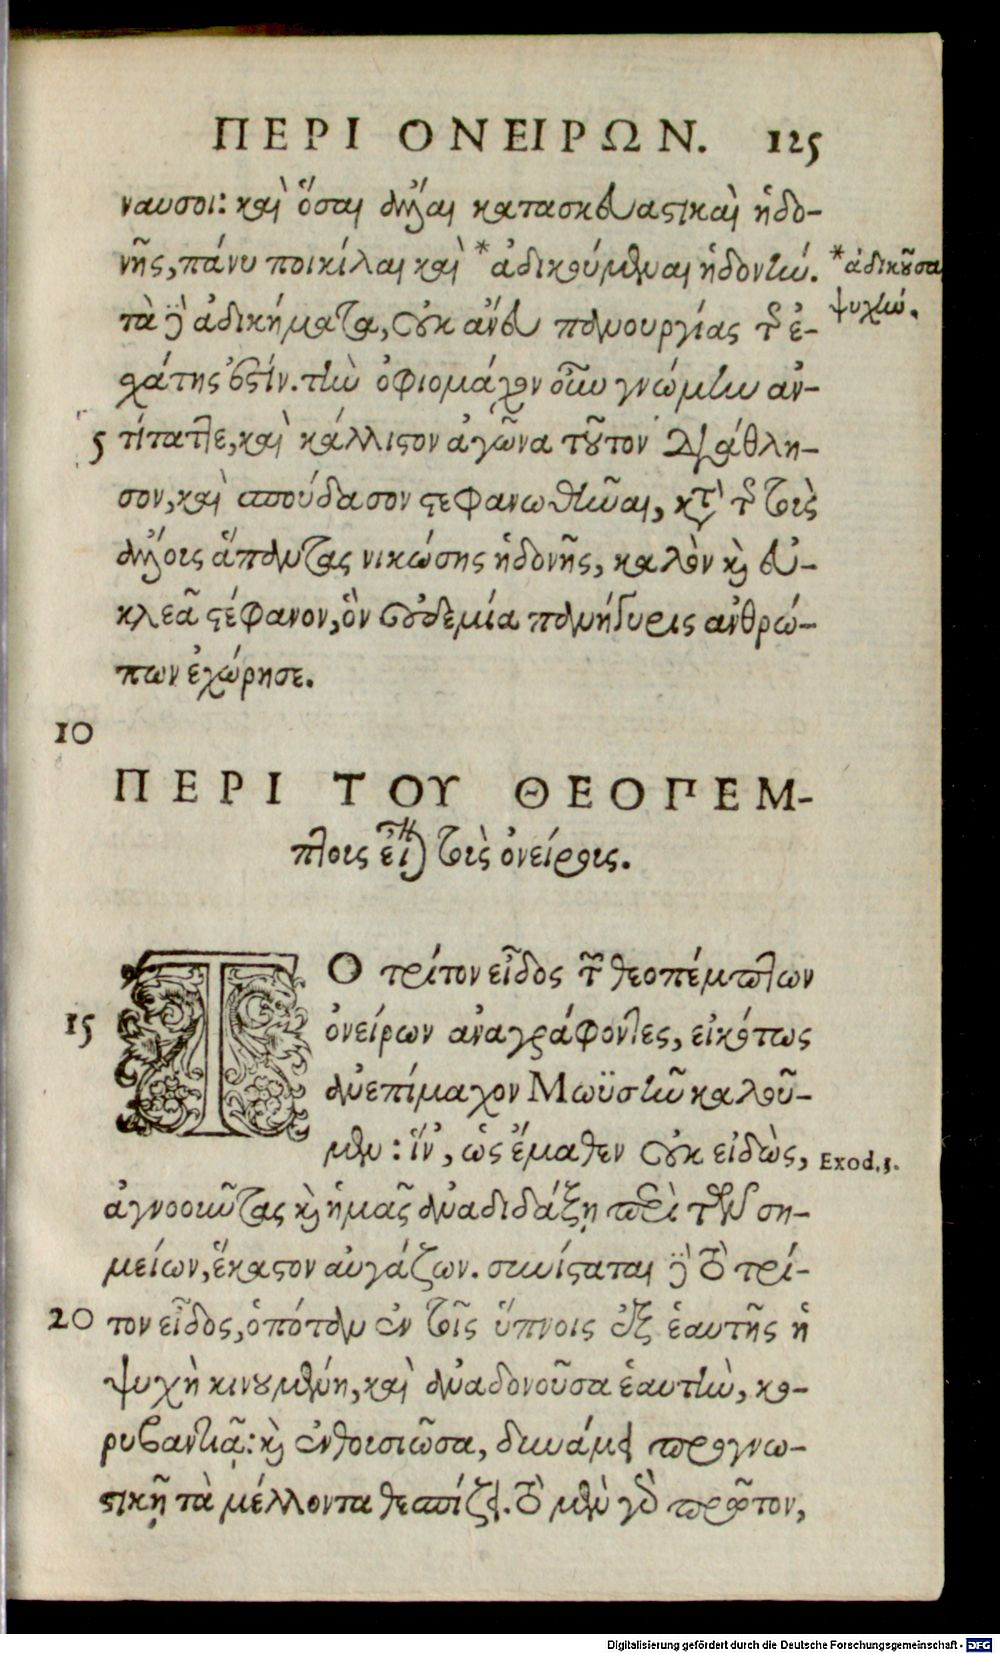 ΠΕΡΙ ΟΝΕΙΡΩΝ. 125
ναυσοι: καὶ ὅσαι ἄλλαι κατασκευαστικαὶ ἡδο-
νῆς, πάνυ ποικίλαι καὶ *ἀδικούμεναι ἡδονὴν. *ἀδικοῦσα
ψυχὴν.
τὰ δὲ ἀδικήματα, οὐκ ἄνευ πανουργίας τῆς ἐ-
χάτης ἐστίν. τὴν ὀφιομάχον οὖν γνώμην ἀν-
5 τίταττε, καὶ κάλλιστον ἀγῶνα τοῦτον διάθλη-
σον, καὶ σπούδασον στεφανωθῆναι, κατὰ τῆς τοὺς
ἄλλους ἅπαντας νικώσης ἡδονῆς, καλὸν καὶ εὐ-
κλεᾶ στέφανον, ὃν οὐδεμία πανήγυρις ἀνθρώ-
πων ἐχώρησε.
10
ΠΕΡΙ ΤΟΥ ΘΕΟΠΕΜ-
πτους εἶναι τοὺς ὀνείρους.
ΤΟ τρίτον εἶδος τῶν θεοπέμπτων
15 ὀνείρων ἀναγράφοντες, εἰκότως
ἀνεπίμαχον Μωϋσῆν καλοῦ-
μεν: ἵν', ὡς ἔμαθεν οὐκ εἰδὼς, Exod. 3.
ἀγνοοῦντας καὶ ἡμᾶς ἀναδιδάξῃ περὶ τῶν ση-
μείων, ἕκαστον αὐγάζων. συνίσταται δὲ τὸ τρί-
20 τον εἶδος, ὁπόταν ἐν τοῖς ὕπνοις ἐξ ἑαυτῆς ἡ
ψυχὴ κινουμένη, καὶ ἀναδονοῦσα ἑαυτὴν, κο-
ρυβαντιᾷ: καὶ ἐνθουσιῶσα, δυνάμει προγνω-
στικῇ τὰ μέλλοντα θεσπίζει. τὸ μὲν γὰρ πρῶτον,
Digitalisierung gefördert durch die Deutsche Forschungsgemeinschaft - DFG